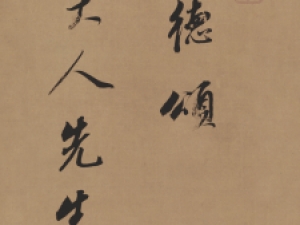 德頌
大人先生